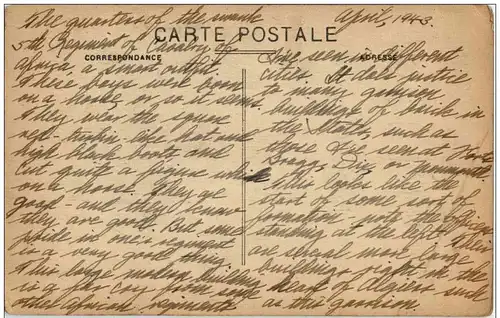 The quarters of the
5th Regiment of Cavalry of
Africa a smart outfit.
These boys were born
on a horse or so it seems
They wear the square
hat and
high black boots and
cut quite a figure
on a horse. They are
good and they know
they are good. But some
pride in one's regiment
is a very good thing.
This large modern building
is a far cry from some
other African regiments
April, 1943.
CARTE POSTALE
CORRESPONDANCE
ADRESSE
I've seen in different
cities. It does justice
to many garrison
buildings of brick in
the States, such as
those I've seen at Fort
Bragg, Dix or
this looks like the
start of some sort of
formation - note the officers
standing at the left. This
are several more large
buildings right in the
heart of Algiers such
as this garrison.